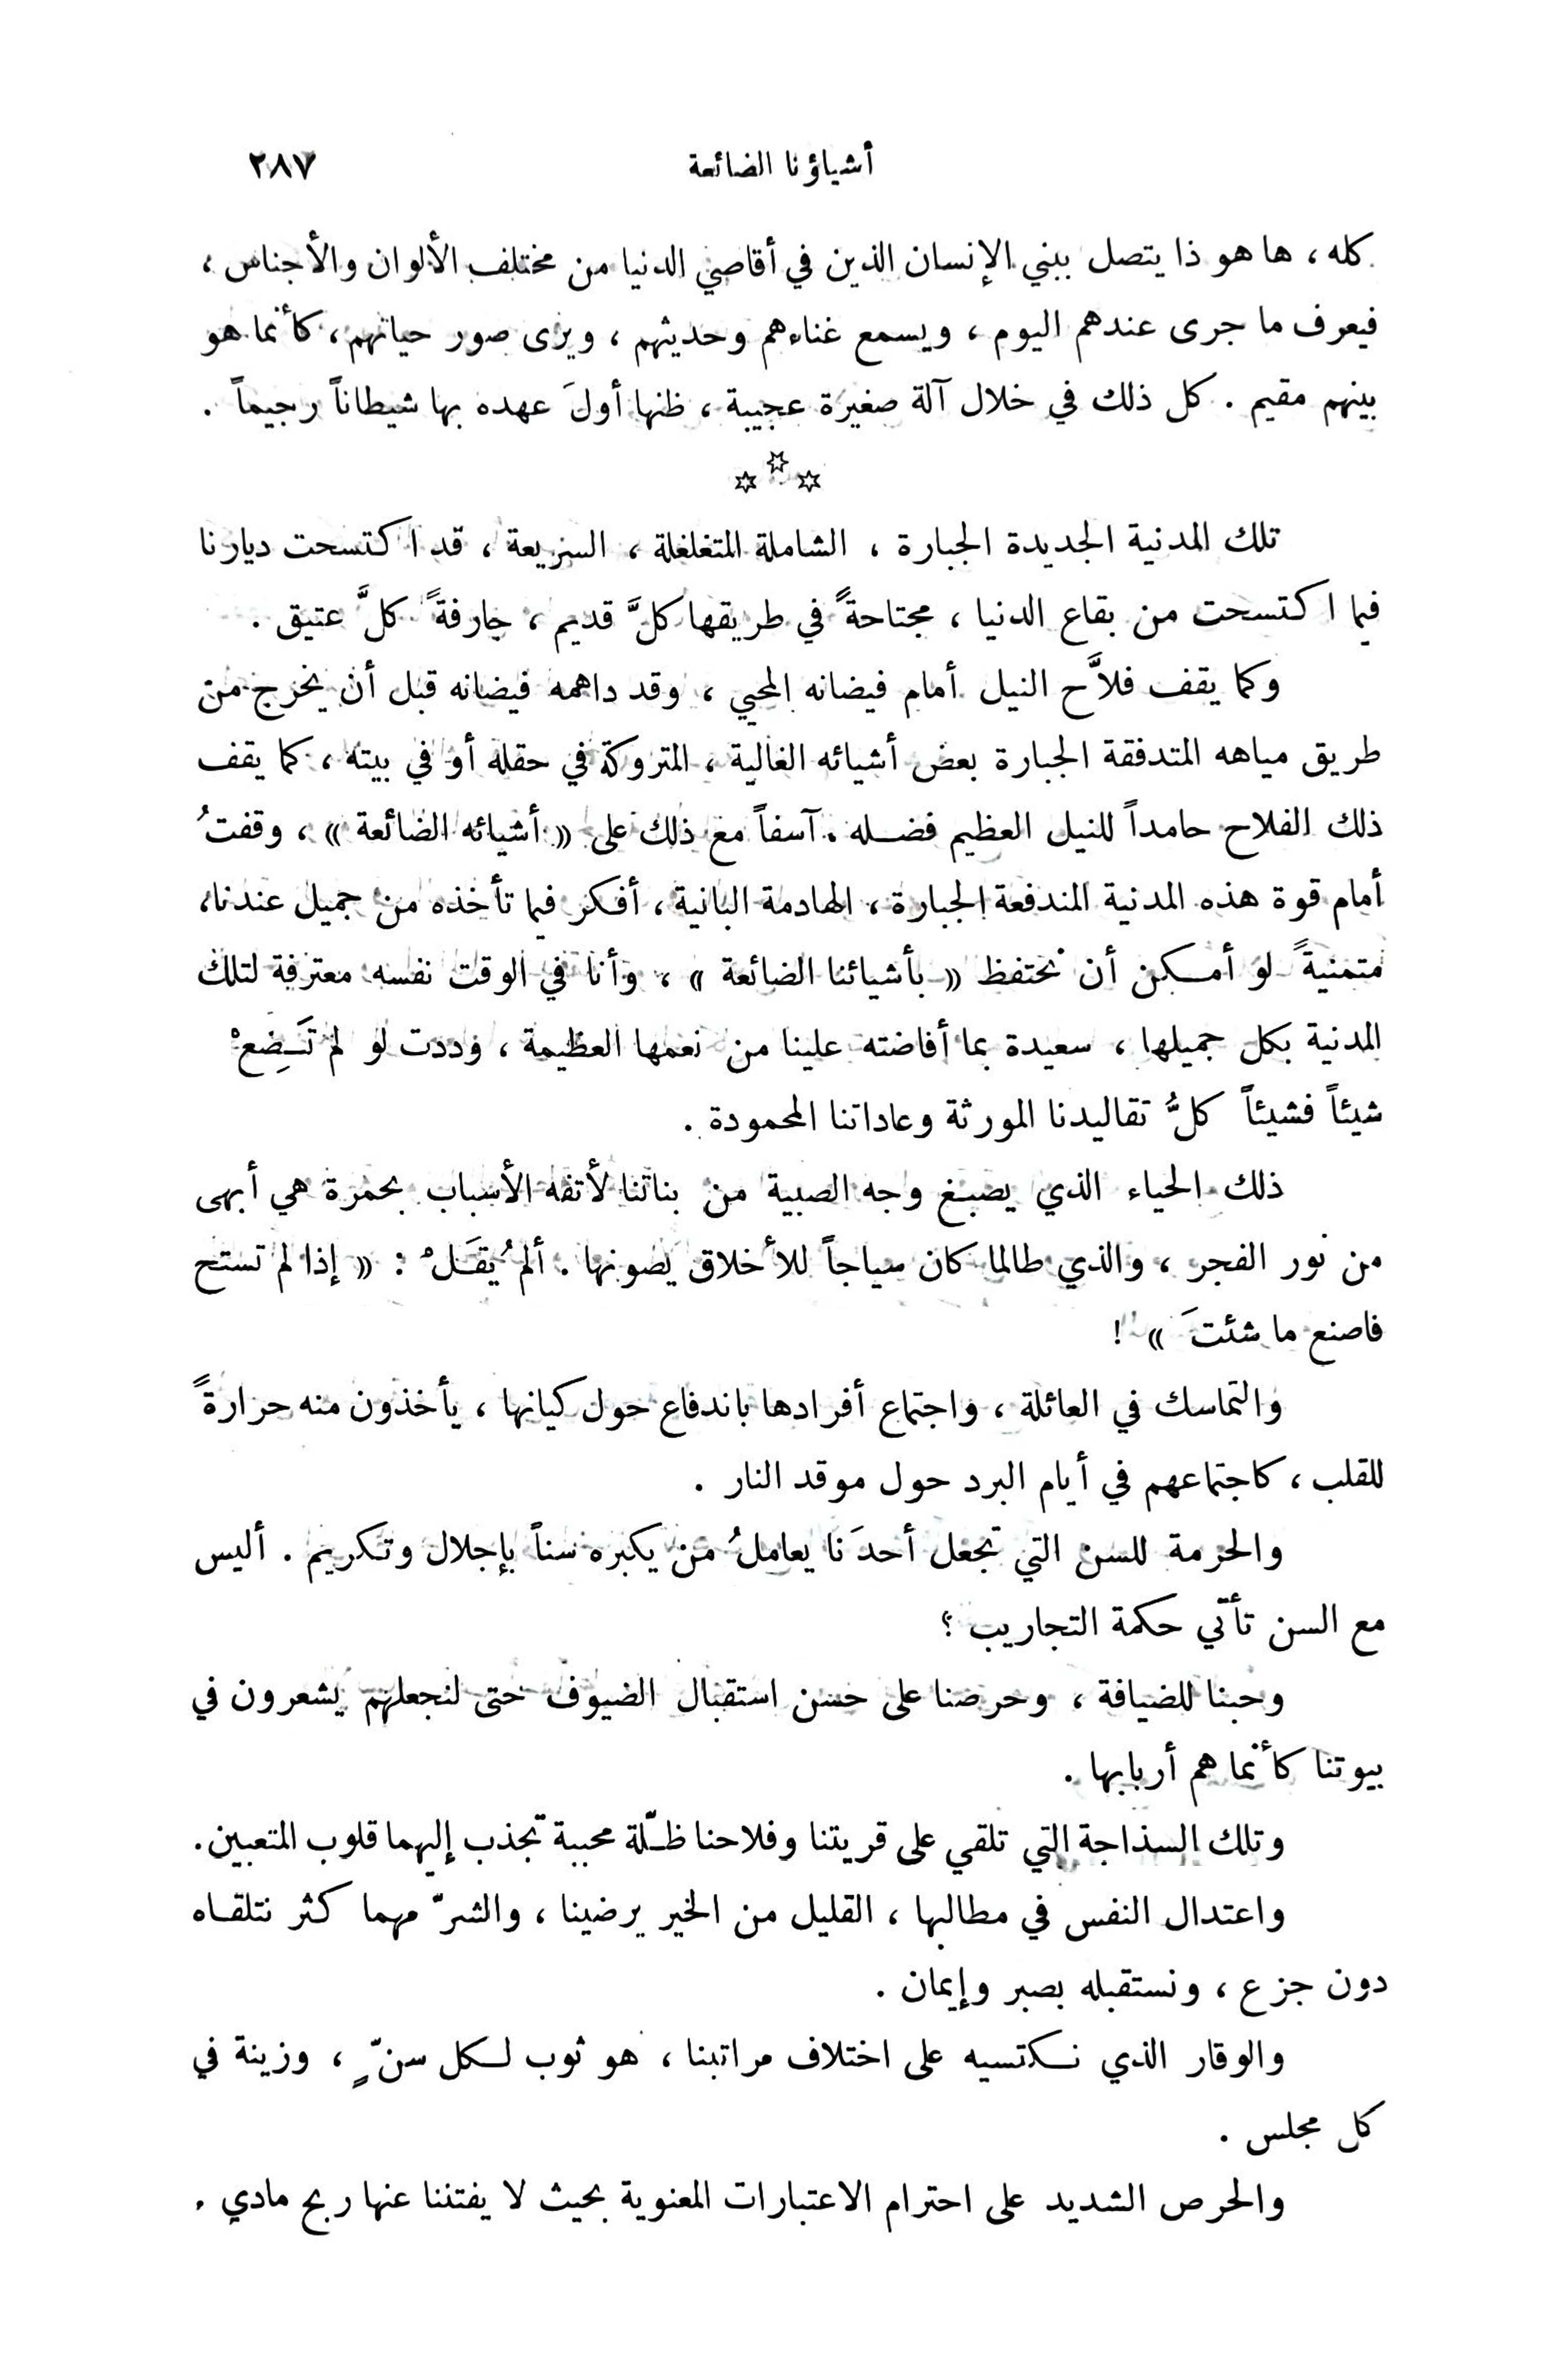 أشياؤنا الضائعة ٢٨٧
كله ، ها هو ذا يتصل ببني الإنسان الذين في أقاصي الدنيا من مختلف الألوان والأجناس ،
فيعرف ما جرى عندهم اليوم ، ويسمع غناءهم وحديثهم ، ويرى صور حياتهم ، كأنما هو
بينهم مقيم . كل ذلك في خلال آلة صغيرة عجيبة ، ظنها أولَ عهده بها شيطاناً رجيماً .
☆ ☆ ☆
تلك المدنية الجديدة الجبارة ، الشاملة المتغلغلة ، السريعة ، قد اكتسحت ديارنا
فيما اكتسحت من بقاع الدنيا ، مجتاحةً في طريقها كلَّ قديم ، جارفةً كلَّ عتيق .
وكما يقف فلاَّح النيل أمام فيضانه المحيي ، وقد داهمه فيضانه قبل أن يخرج من
طريق مياهه المتدفقة الجبارة بعض أشيائه الغالية ، المتروكة في حقله أو في بيته ، كما يقف
ذلك الفلاح حامداً للنيل العظيم فضله . آسفاً مع ذلك على « أشيائه الضائعة » ، وقفتُ
أمام قوة هذه المدنية المندفعة الجبارة ، الهادمة البانية ، أفكر فيما تأخذه من جميل عندنا،
متمنيةً لو أمكن أن نحتفظ « بأشيائنا الضائعة » ، وأنا في الوقت نفسه معترفة لتلك
المدنية بكل جميلها ، سعيدة بما أفاضته علينا من نعمها العظيمة ، وددت لو لم تَضِعْ
شيئاً فشيئاً كلُّ تقاليدنا المورثة وعاداتنا المحمودة .
ذلك الحياء الذي يصبغ وجه الصبية من بناتنا لأتفه الأسباب بحمرة هي أبهى
من نور الفجر ، والذي طالما كان سياجاً للأخلاق يصونها . ألم يُقَلْ : « إذا لم تستح
فاصنع ما شئتَ » !
والتماسك في العائلة ، واجتماع أفرادها باندفاع حول كيانها ، يأخذون منه حرارةً
للقلب ، كاجتماعهم في أيام البرد حول موقد النار .
والحرمة للسن التي تجعل أحدَنا يعاملُ من يكبره سناً بإجلال وتكريم . أليس
مع السن تأتي حكمة التجاريب ؟
وحبنا للضيافة ، وحرصنا على حسن استقبال الضيوف حتى لنجعلهم يشعرون في
بيوتنا كأنما هم أربابها .
وتلك السذاجة التي تلقي على قريتنا وفلاحنا ظلّة محببة تجذب إليهما قلوب المتعبين.
واعتدال النفس في مطالبها ، القليل من الخير يرضينا ، والشرّ مهما كثر نتلقاه
دون جزع ، ونستقبله بصبر وإيمان .
والوقار الذي نكتسيه على اختلاف مراتبنا ، هو ثوب لكل سنٍّ ، وزينة في
كل مجلس .
والحرص الشديد على احترام الاعتبارات المعنوية بحيث لا يفتننا عنها ربح مادي .